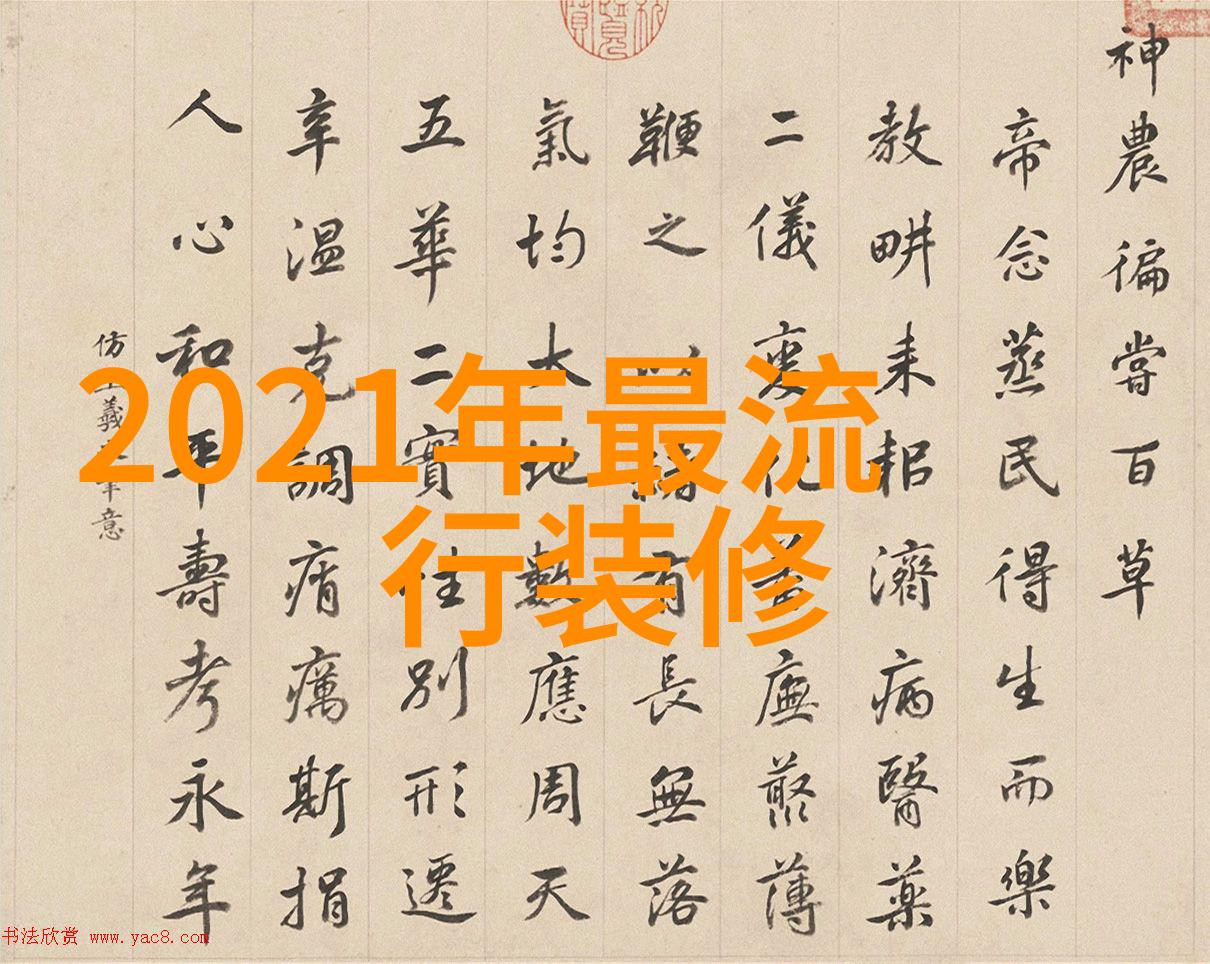 神農徧嘗百草
帝念蒸民得生而樂
教畊耒耜濟病醫藥
二儀變化藂薄
鞭之有長無落
氣均大地數應周天
五華二實性別形遷
辛溫克調痟癘斯捐
人心和平壽考永年
仿羲筆意
2021年最流
行装修
书法欣赏 www.yac8.com